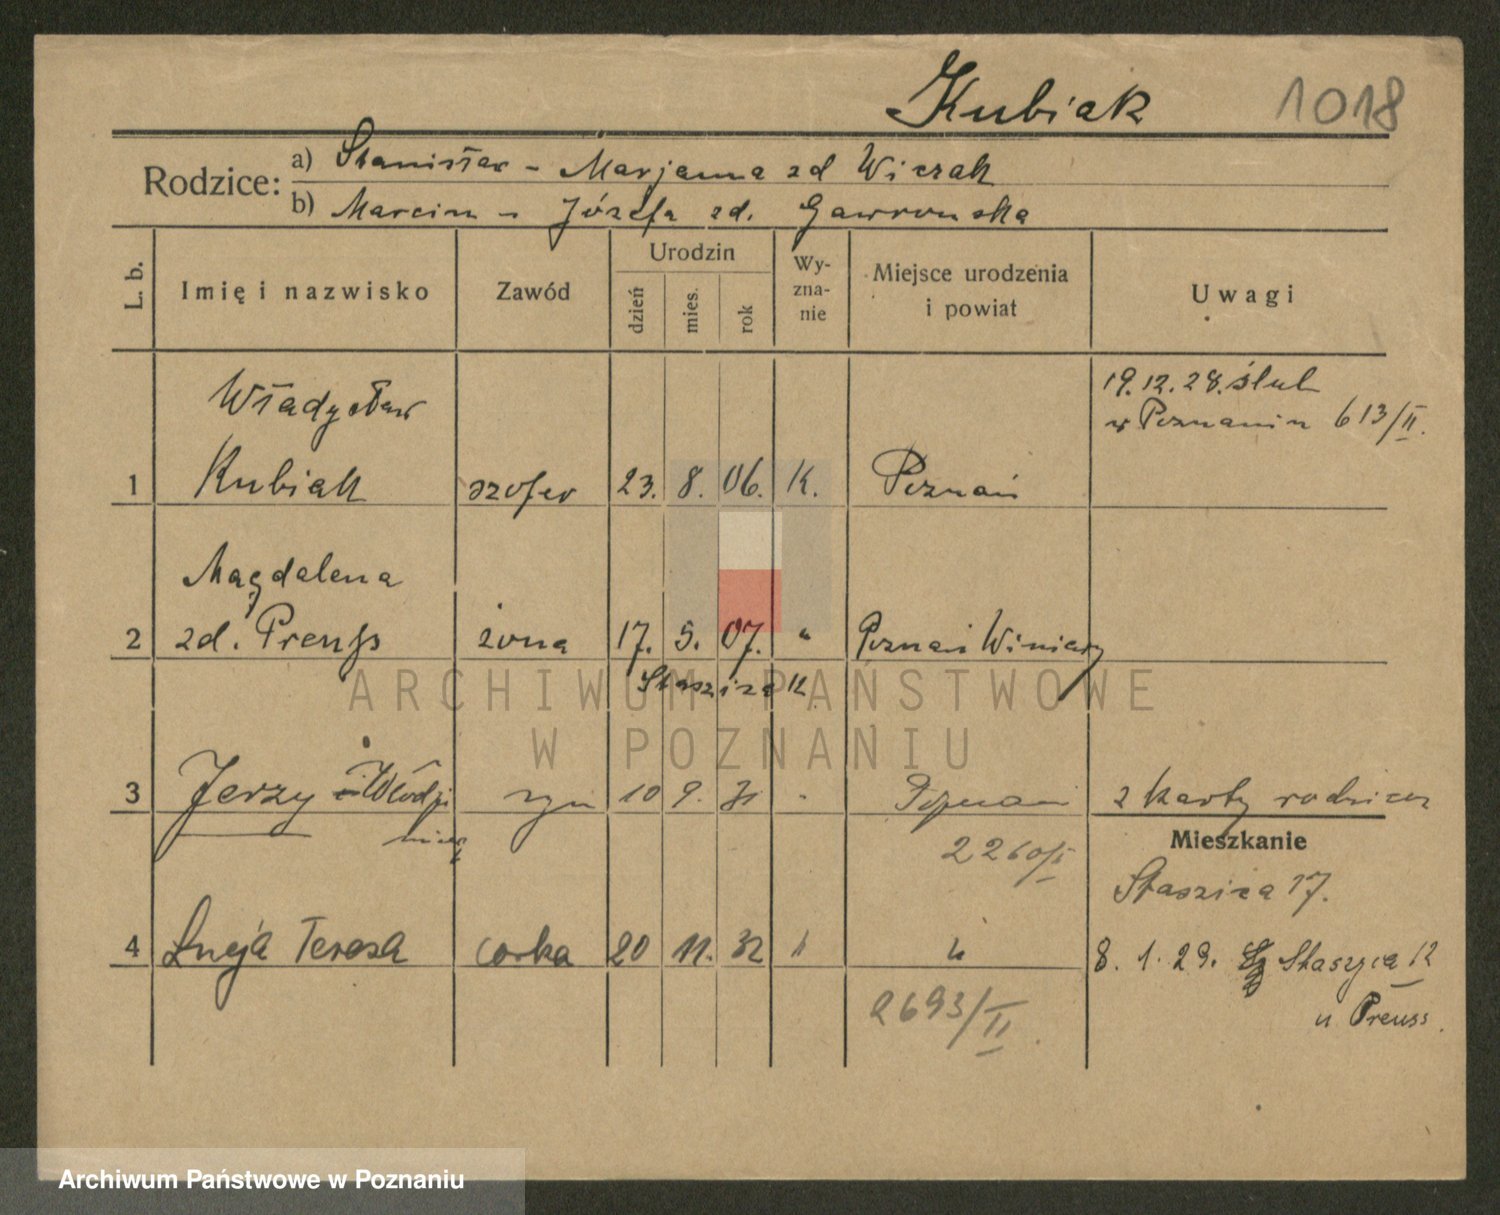 Kubiak 1018
Rodzice: a) Stanisław - Marjanna zd Wiczak
b) Marcin - Józefa zd. Gawrońska
L. b. Imię i nazwisko Zawód Urodzin dzień mies. rok Wy-zna-nie Miejsce urodzenia i powiat Uwagi
19.12.28. ślub
w Poznaniu 613/II.
Władysław
1 Kubiak szofer 23. 8. 06. K. Poznań
Magdalena
2 zd. Preuß żona 17. 5. 07. " Poznań Winiary
Staszica 12
ARCHIWUM PAŃSTWOWE
W POZNANIU
3 Jerzy Włodzi syn 10 9. 31 Poznań z karty rodzica
mierz
Mieszkanie
2260/II
Staszica 17.
4 Łucja Teresa corka 20 11. 32 " "
8. 1. 29. Staszyca 12
2693/II
u Preuss.
Archiwum Państwowe w Poznaniu